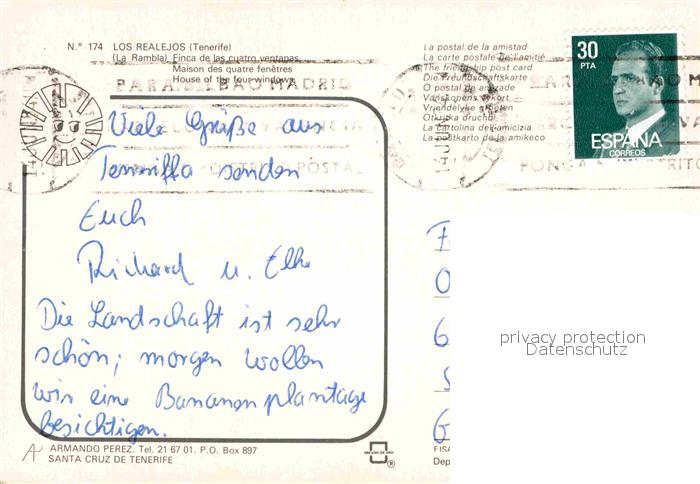 N.° 174 LOS REALEJOS (Tenerife)
(La Rambla) Finca de las cuatro ventanas
Maison des quatre fenêtres
House of the four windows
La postal de la amistad
La carte postale de l'amitié
The friendship post card
Die Freundschaftskarte
O postal de amizade
Vanskapens vykort
Vriendelyke groeten
Otkrytka druchbi
La cartolina dell'amicizia
La postkarto de la amikeco
30
PTA
ESPAÑA
CORREOS
PARA BILBAO MADRID
PONGA DISTRITO POSTAL
14 JUN
Viele Grüße aus
Teneriffa senden
Euch
Richard u. Elke
Die Landschaft ist sehr
schön; morgen wollen
wir eine Bananenplantage
besichtigen.
privacy protection
Datenschutz
ARMANDO PEREZ. Tel. 21 67 01. P.O. Box 897
SANTA CRUZ DE TENERIFE
ESCUDO DE ORO
®
FISA
Dep